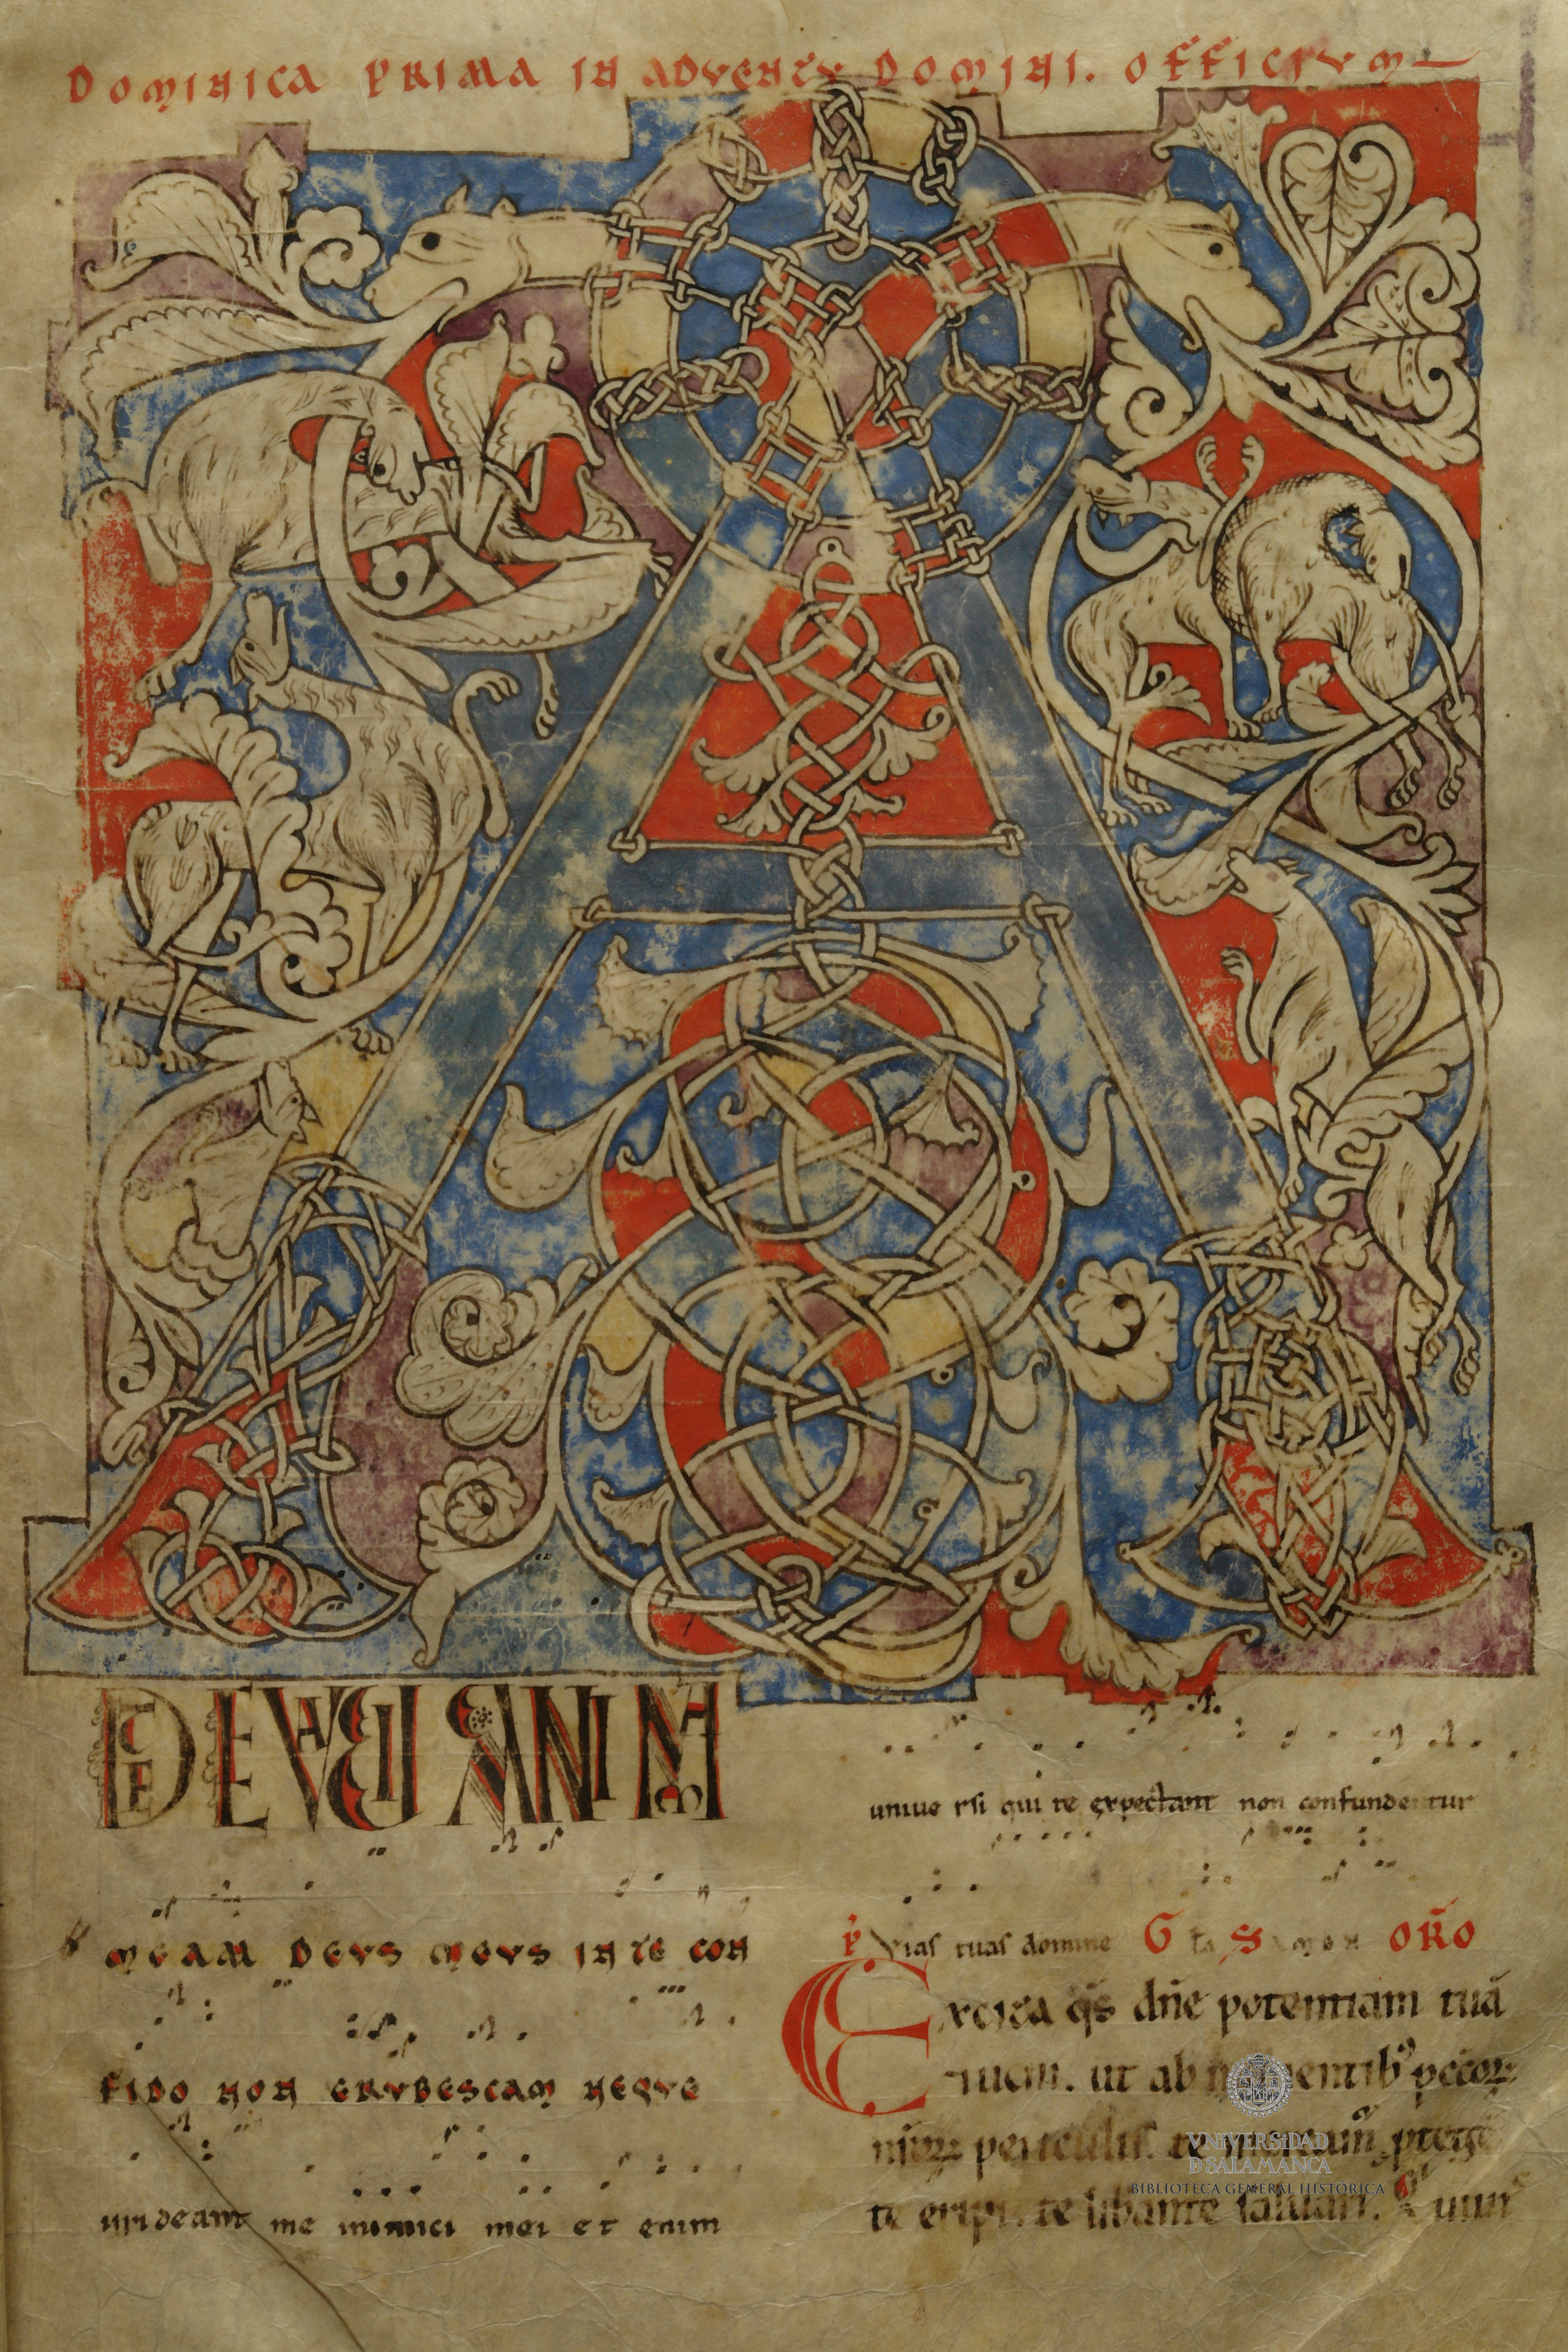 DOMINICA PRIMA IN ADVENTU DOMINI. OFFICIUM
A
D TE LEVAVI ANIMAM
MEAM DEUS MEUS IN TE CON
FIDO NON ERUBESCAM NEQUE
irrideant me inimici mei et enim
universi qui te expectant non confundentur
P̄ Vias tuas domine Gla S amen ORO
Excita q̄s dn̄e potentiam tuā
et veni. ut ab
periculis. te mereamur
te eripi. te liberante salvari. Qui
UNIVERSIDAD
D SALAMANCA
BIBLIOTECA GENERAL HISTÓRICA